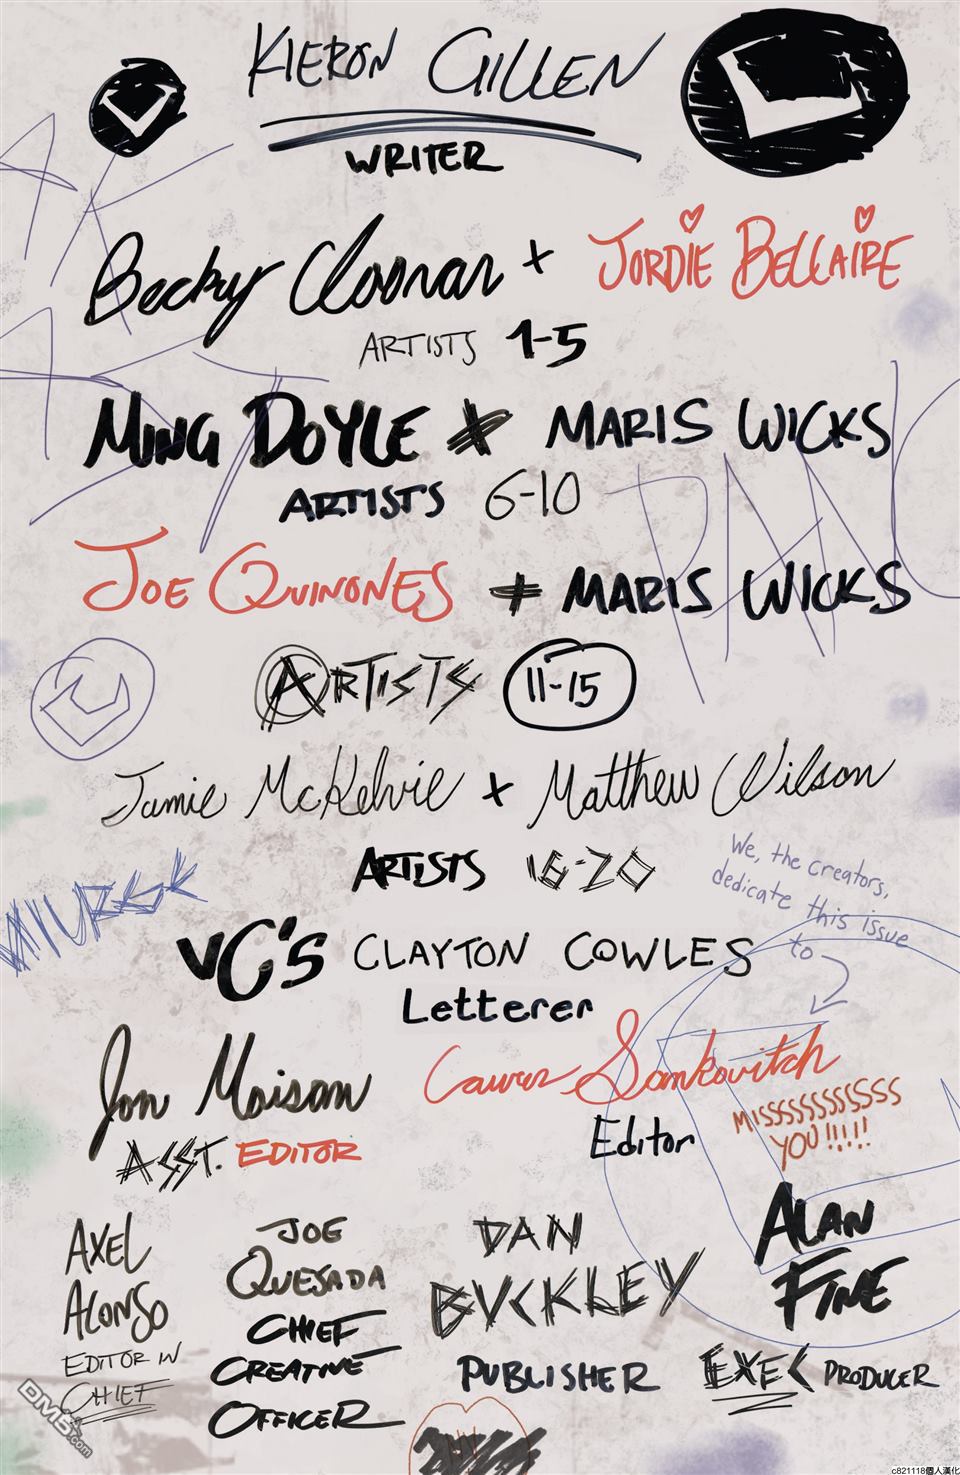 KIERON GILLEN
WRITER
Becky Cloonan + JORDIE BELLAIRE
ARTISTS 1-5
MING DOYLE + MARIS WICKS
ARTISTS 6-10
JOE QUINONES + MARIS WICKS
ARTISTS 11-15
Jamie McKelvie + Matthew Wilson
ARTISTS 16-20
We, the creators,
dedicate this issue
to
VC'S CLAYTON COWLES
Letterer
Jon Moisan
ASST. EDITOR
Lauren Sankovitch
Editor
MISSSSSSSSSSSS
YOU!!!!!
AXEL
ALONSO
EDITOR IN
CHIEF
JOE
QUESADA
CHIEF
CREATIVE
OFFICER
DAN
BUCKLEY
PUBLISHER
ALAN
FINE
EXEC PRODUCER
DM5.com
c821118個人漢化